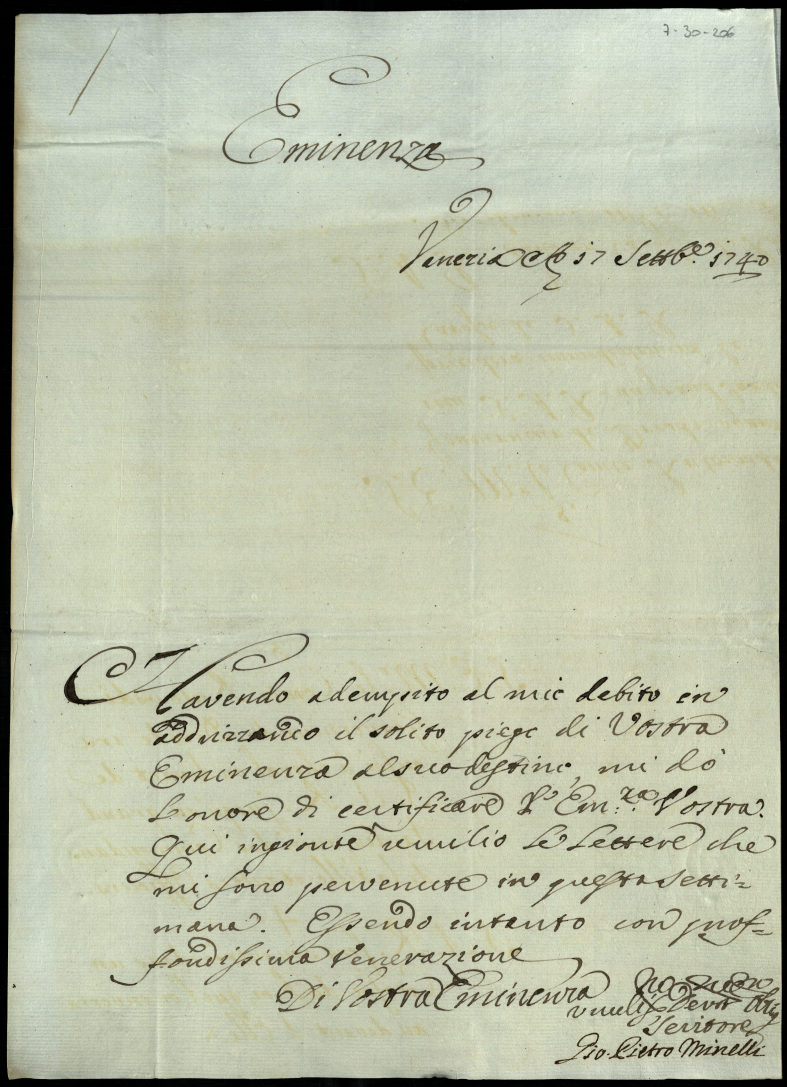 7-30-206
Eminenza
Venezia 17 Settbe. 1740
Havendo adempito al mio debito in
addrizzando il solito piego di Vostra
Eminenza al suo destino, mi dò
l'onore di certificare l'Em.za Vostra.
Qui ingionte umilio le lettere che
mi sono pervenute in questa setti=
mana. Essendo intanto con prof=
fondissima venerazione
Di Vostra Eminenza
Devot
Servitore
Gio. Pietro Minelli